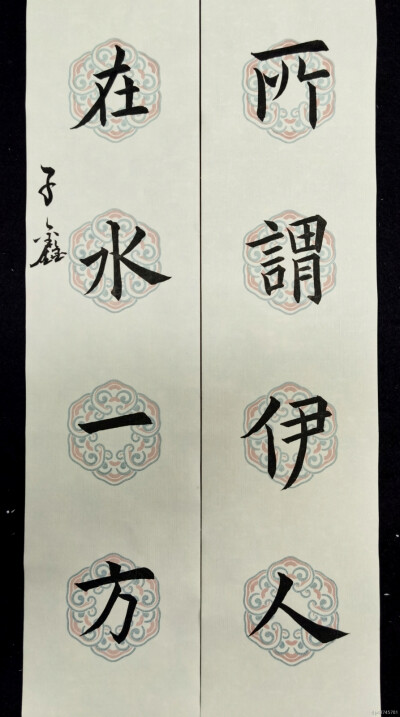 所謂伊人
在水一方
子鑫